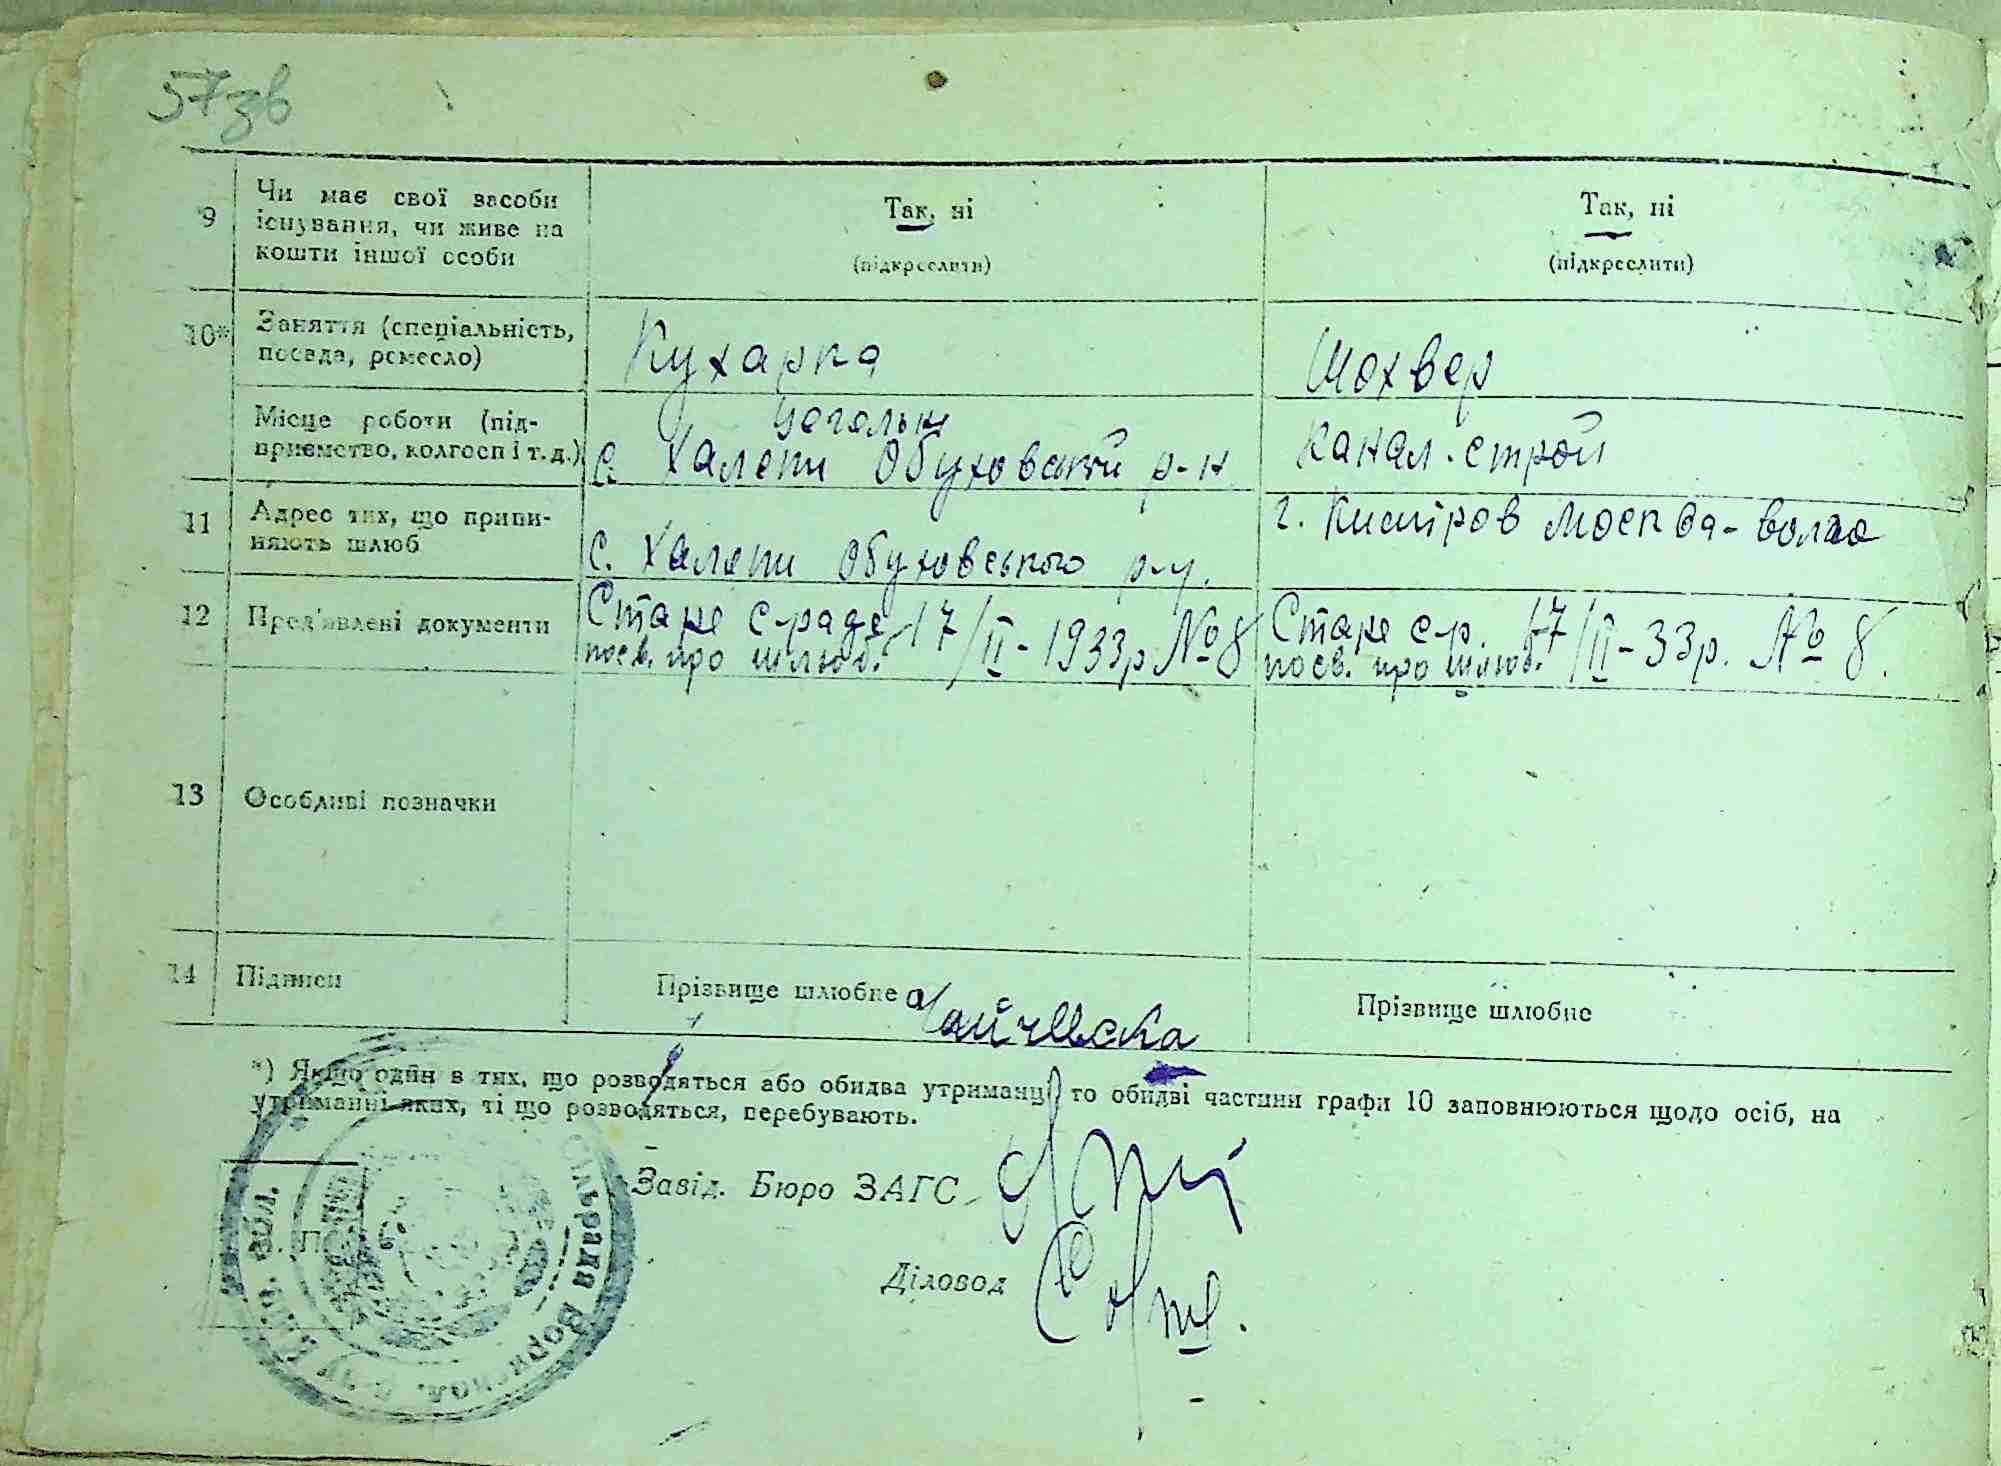 57зв
9 Чи має свої засоби існування, чи живе на кошти іншої особи
Так, ні
(підкреслити)
Так, ні
(підкреслити)
10* Заняття (спеціальність, посада, ремесло)
Кухарка
Шохвер
Місце роботи (підприємство, колгосп і т. д.)
с. Халепи Обуховський р-н
Канал. строй
11 Адрес тих, що припиняють шлюб
с. Халепи Обуховського р-у.
г. Москва-Волга
12 Пред'явлені документи
Старе с-рада 17/II-1933р № 8
посв. про шлюб.
Старе с-р. 17/II-33р. № 8.
посв. про шлюб.
13 Особливі позначки
14 Підписи
Прізвище шлюбне
Прізвище шлюбне
*) Якщо один в тих, що розводяться або обидва утриманці то обидві частини графи 10 заповнюються щодо осіб, на
утриманні яких, ті що розводяться, перебувають.
Завід. Бюро ЗАГС
Діловод
сільрада
обл.